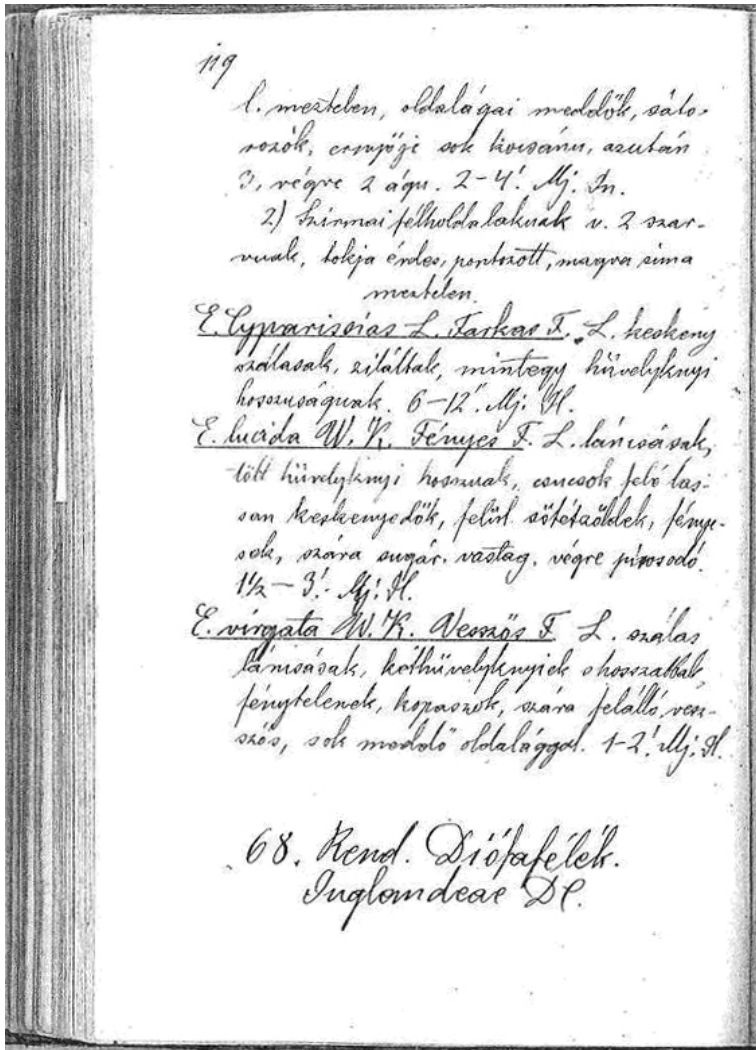 119
l. meztelen, oldalágai meddők, sáto-
rozók, ernyője sok kocsánu, azután
3, végre 2 águ. 2-4'. Mj. Jn.
2.) Szirmai félholdalakuak v. 2 szar-
vuak, tokja érdes, pontozott, magva sima
meztelen.
E. Cyparissias L. Farkas F. L. keskeny
szálasak, ziláltak, mintegy hüvelyknyi
hosszuságuak. 6-12". Mj. H.
E. lucida W. K. Fényes F. L. láncsásak,
több hüvelyknyi hosszuak, csucsok felé las-
san keskenyedők, felül sötétzöldek, fénye-
sek, szára sugár. vastag. végre pirosodó.
1½ - 3'. Mj. H.
E. virgata W. K. Vesszős F. L. szálas
láncsásak, kéthüvelyknyiek s hosszabbak,
fénytelenek, kopaszok, szára felálló, vesz-
szős, sok meddő oldalággal. 1-2'. Mj. H.
68. Rend. Diófafélék.
Juglandeae DC.